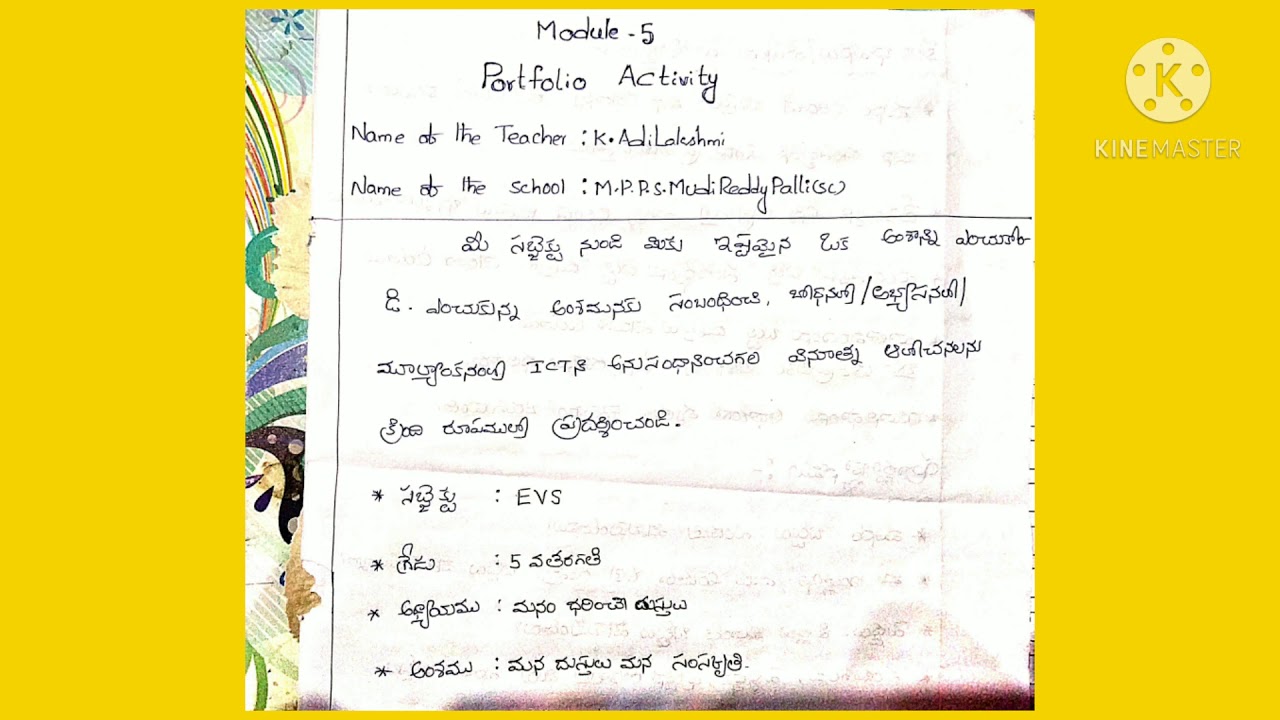 Module - 5
Portfolio Activity
Name of the Teacher : K. AdiLakshmi
Name of the school : M.P.P.S. MudiReddyPalli(sc)
మీ సబ్జెక్టు నుండి మీకు ఇష్టమైన ఒక అంశాన్ని ఎంచుకోం
డి. ఎంచుకున్న అంశమునకు సంబంధించి, బోధనలో/అభ్యసనలో/
మూల్యాంకనంలో ICTని అనుసంధానించగల వినూత్న ఆలోచనలను
క్రింది రూపములో ప్రదర్శించండి.
* సబ్జెక్టు : EVS
* గ్రేడు : 5 వతరగతి
* అధ్యాయము : మనం ధరించే దుస్తులు
* అంశము : మన దుస్తులు మన సంస్కృతి.
K
KINEMASTER